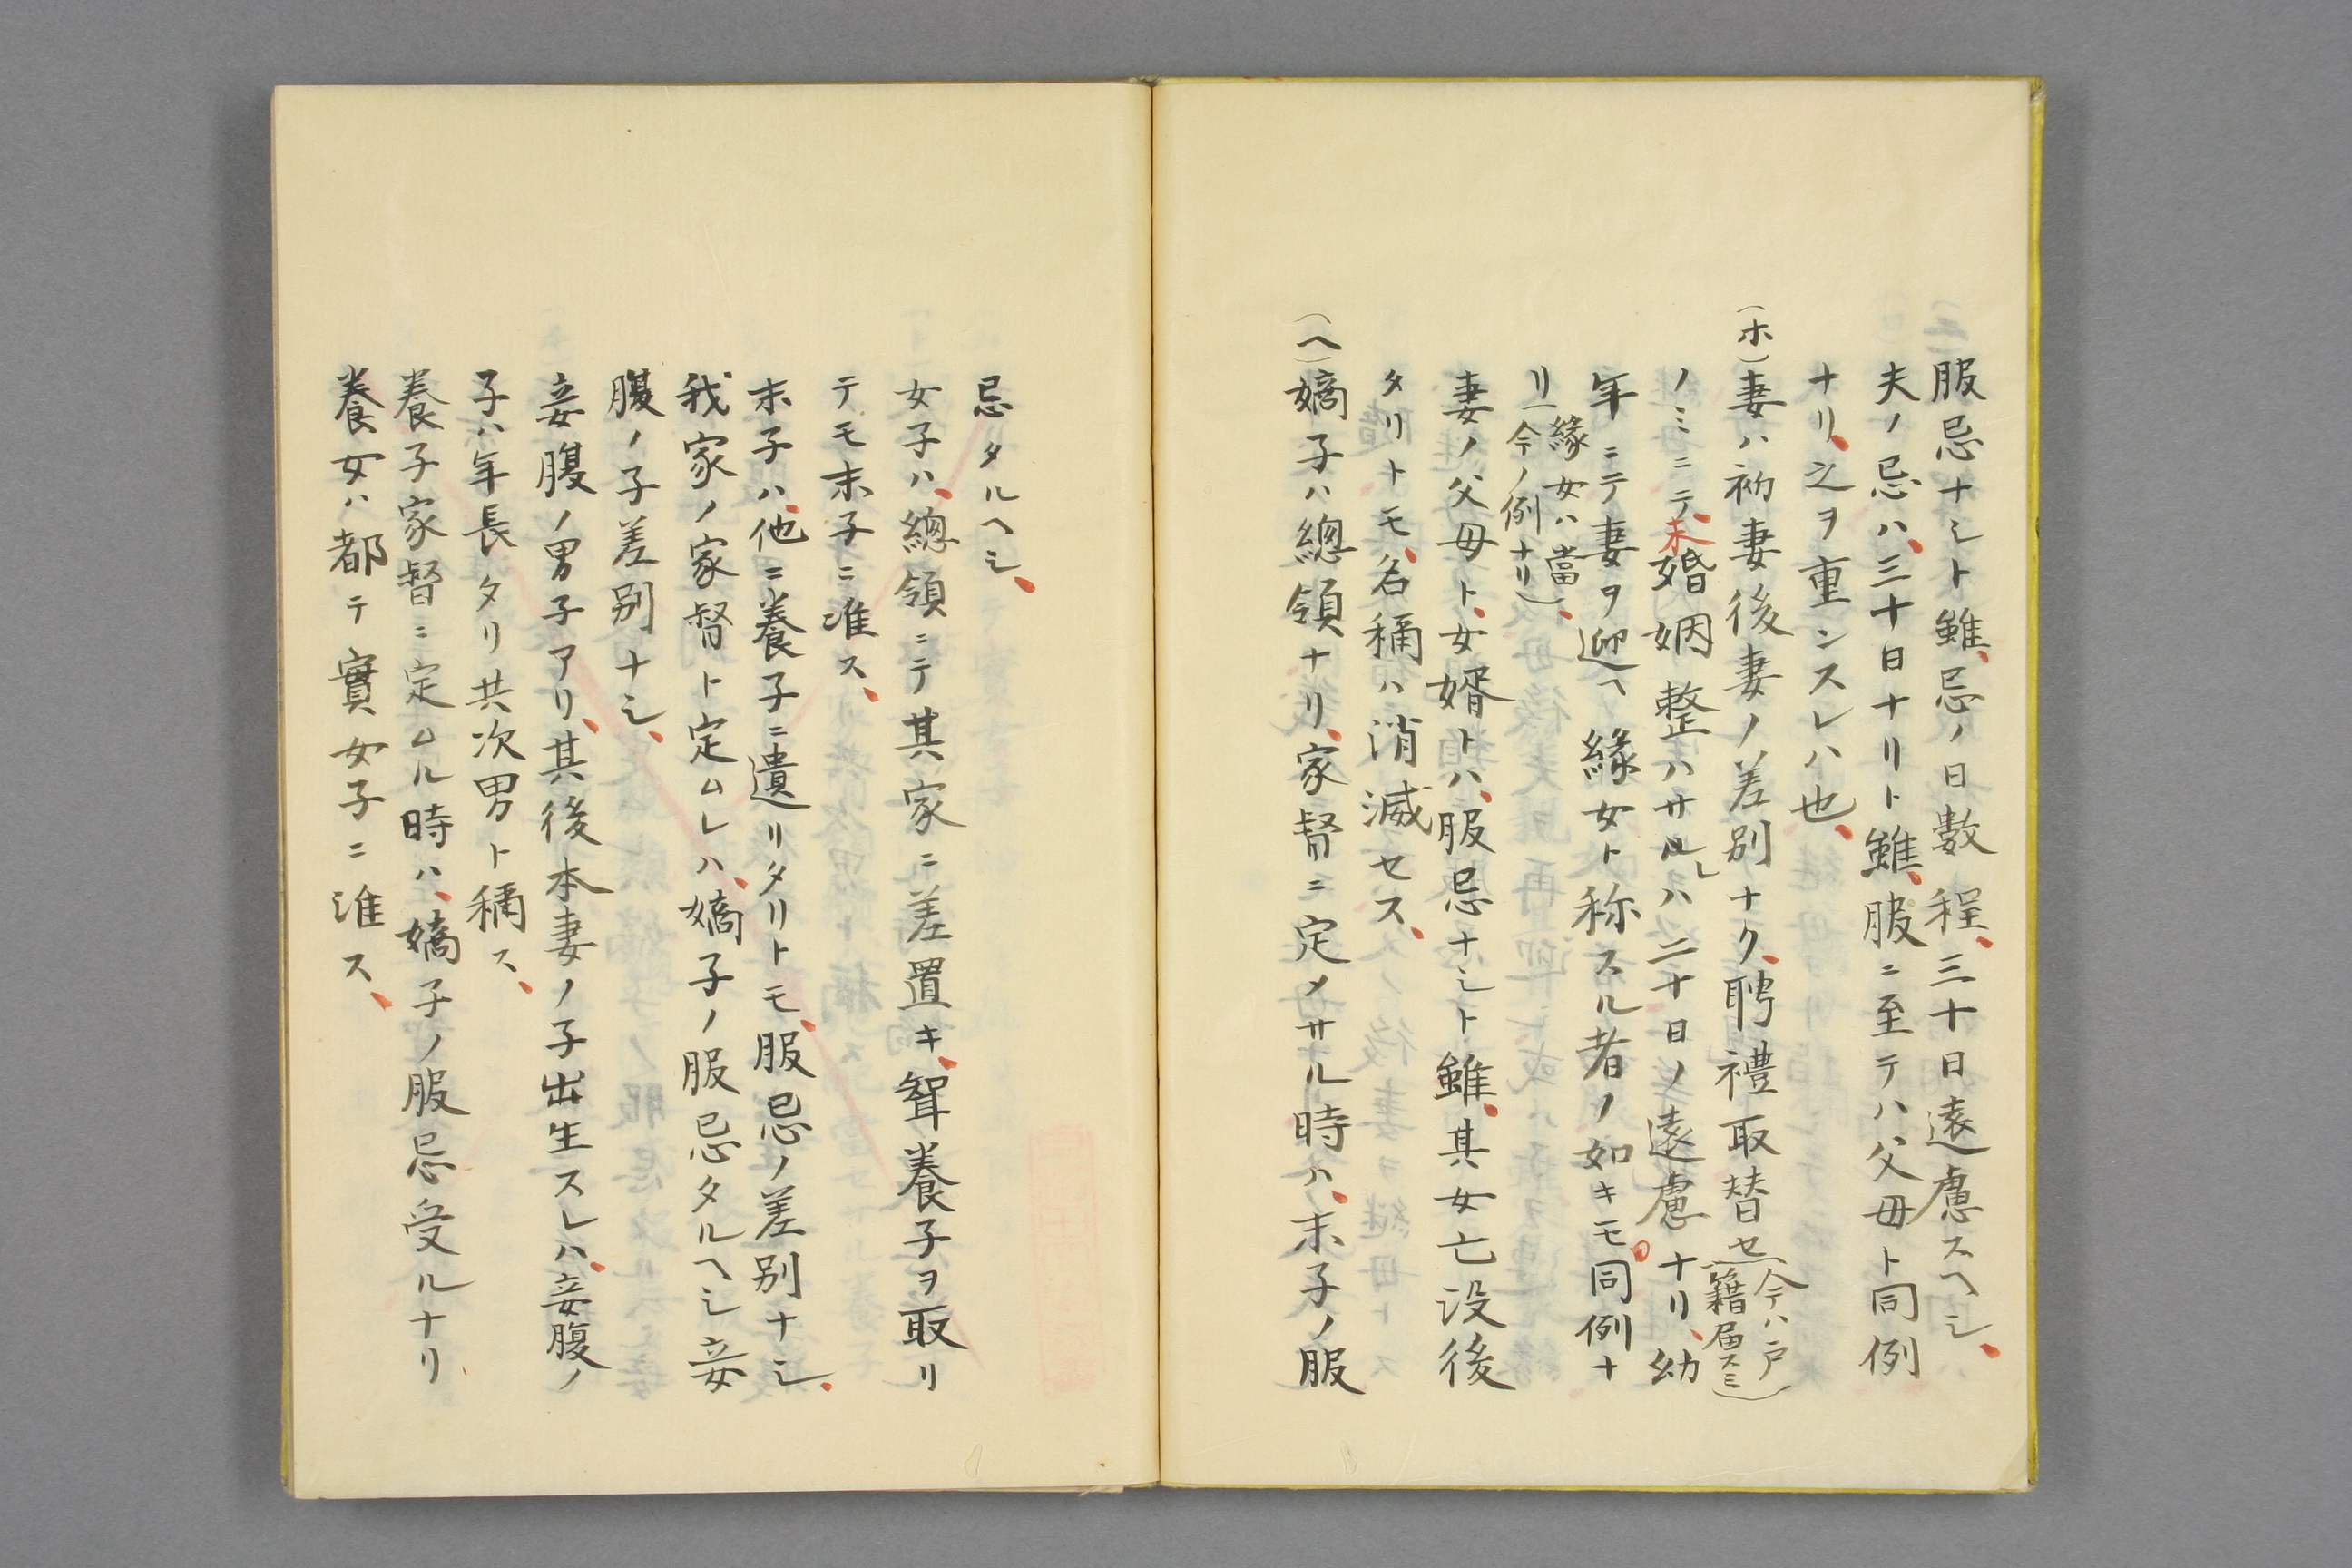 服忌ナシト雖、忌ノ日數程、三十日遠慮スヘシ、
夫ノ忌ハ、三十日ナリト雖、服ニ至テハ父母ト同例
ナリ、之ヲ重ンスレハ也、
(ホ)妻ハ初妻後妻ノ差別ナク、聘禮取替セ(今ハ戸籍届スミ)
ノミニテ、未婚姻整ハサルレハ二十日ノ遠慮ナリ、幼
年ニテ妻ヲ迎ヘ緣女ト称スル者ノ如キモ同例ナ
リ(緣女ハ當今ノ例ナリ)、
妻ノ父母ト、女婿トハ、服忌ナシト雖、其女亡没後
タリトモ、名稱ハ消滅セス、
(ヘ)嫡子ハ總領ナリ、家督ニ定メサル時ハ、末子ノ服
忌タルヘシ、
女子ハ、總領ニテ其家ニ差置キ、聟養子ヲ取リ
テモ末子ニ准ス、
末子ハ、他ニ養子ニ遣リタリトモ、服忌ノ差別ナシ、
我家ノ家督ト定ムレハ、嫡子ノ服忌タルヘシ妾
腹ノ子差別ナシ、
妾腹ノ男子アリ、其後本妻ノ子出生スレハ、妾腹ノ
子ハ年長タリ共次男ト稱ス、
養子家督ニ定ムル時ハ、嫡子ノ服忌受ルナリ
養女ハ都テ實女子ニ准ス、